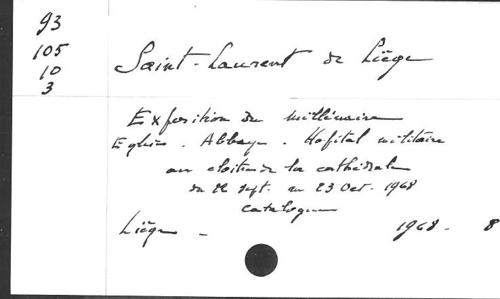 93
105
10
3
Saint-Laurent de Liège
Exposition du millénaire
Eglise. Abbaye. Hôpital militaire
au cloître de la cathédrale
du 22 sept. au 23 Oct. 1968
Catalogue
Liège - 1968. 8